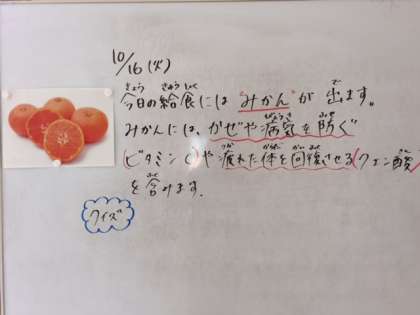 10/16(火)
今日の給食には"みかん"が出ます。
みかんには、かぜや病気を防ぐ
ビタミンCや疲れた体を回復させるクエン酸
を含みます。
クイズ